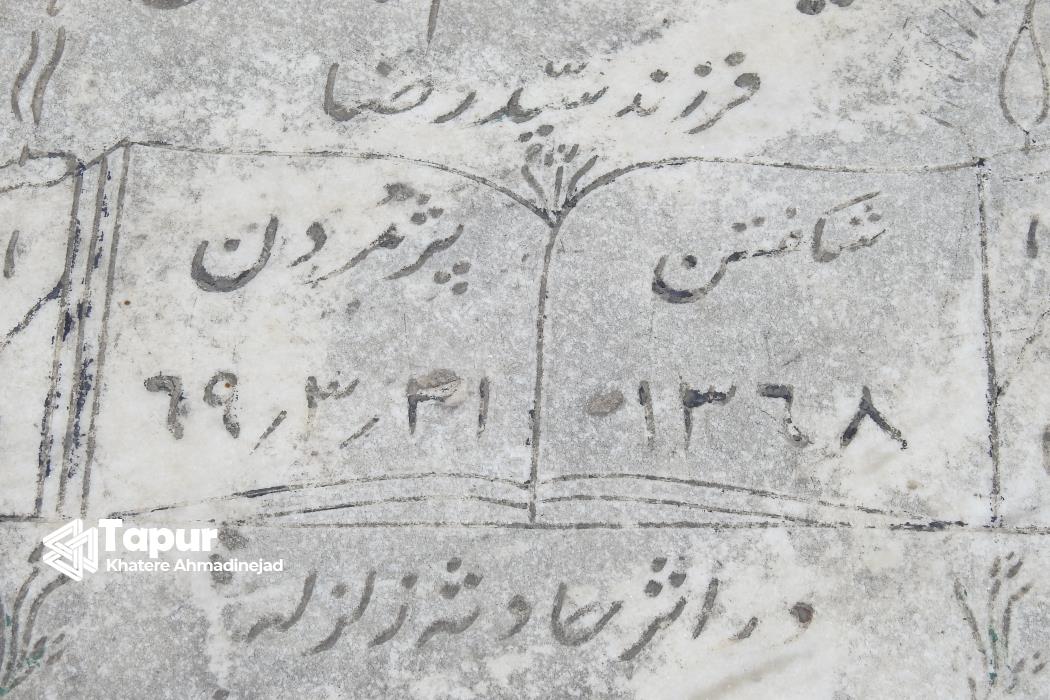 فرزند سید رضا
شکفتن
پژمردن
۱۳۶۸
۶۹/۳/۳۱
در اثر حادثه زلزله
Tapur
Khatere Ahmadinejad